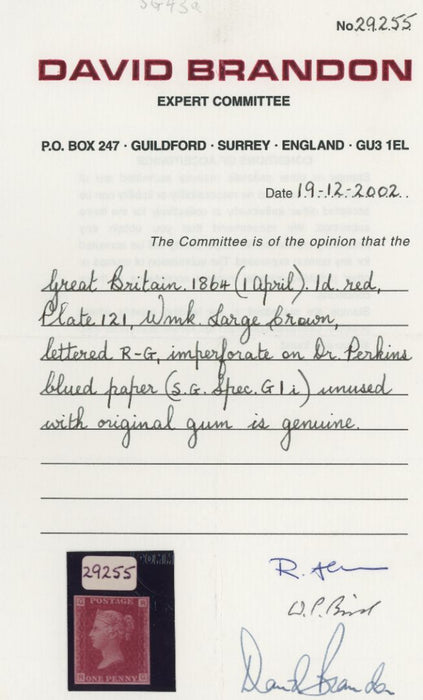 SG43a
No. 29255
DAVID BRANDON
EXPERT COMMITTEE
P.O. BOX 247 · GUILDFORD · SURREY · ENGLAND · GU3 1EL
Date 19-12-2002
The Committee is of the opinion that the
Great Britain. 1864 (1 April). 1d. red,
Plate 121, Wmk. Large Crown,
lettered R-G, imperforate on Dr. Perkins
blued paper (S.G. Spec. G1i) unused
with original gum is genuine.
29255
POSTAGE
ONE PENNY
David Brandon